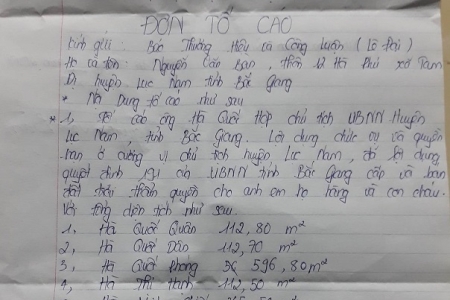 ĐƠN TỐ CAO
Kính gửi: Báo Thương Hiệu và Công Luận (
Họ và tên: Nguyễn Văn Ban, thôn Hà Phú xã Tam
Dị huyện Lục Nam tỉnh Bắc Giang
* Nội Dung tố cáo như sau
* 1, Tố cáo ông Hà Quốc Hợp chủ tịch UBNN Huyện
Lục Nam, tỉnh Bắc Giang. Lợi dụng chức vụ và quyền
hạn ở cương vị chủ tịch huyện Lục Nam, đã lợi dụng
quyết định 191 của UBNN tỉnh Bắc Giang cấp và bán
đất trái thẩm quyền cho anh em họ hàng và con cháu.
Với tổng diện tích như sau.
1, Hà Quốc Quân 112,80 m²
2, Hà Quốc Dân 112,70 m²
3, Hà Quốc Phong 596,80m²
4, Hà Thị Hạnh 112,50 m²